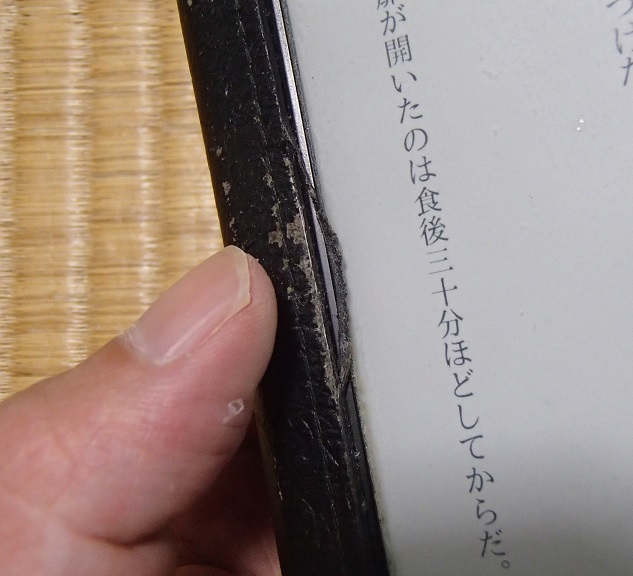 つけた
扉が開いたのは食後三十分ほどしてからだ。